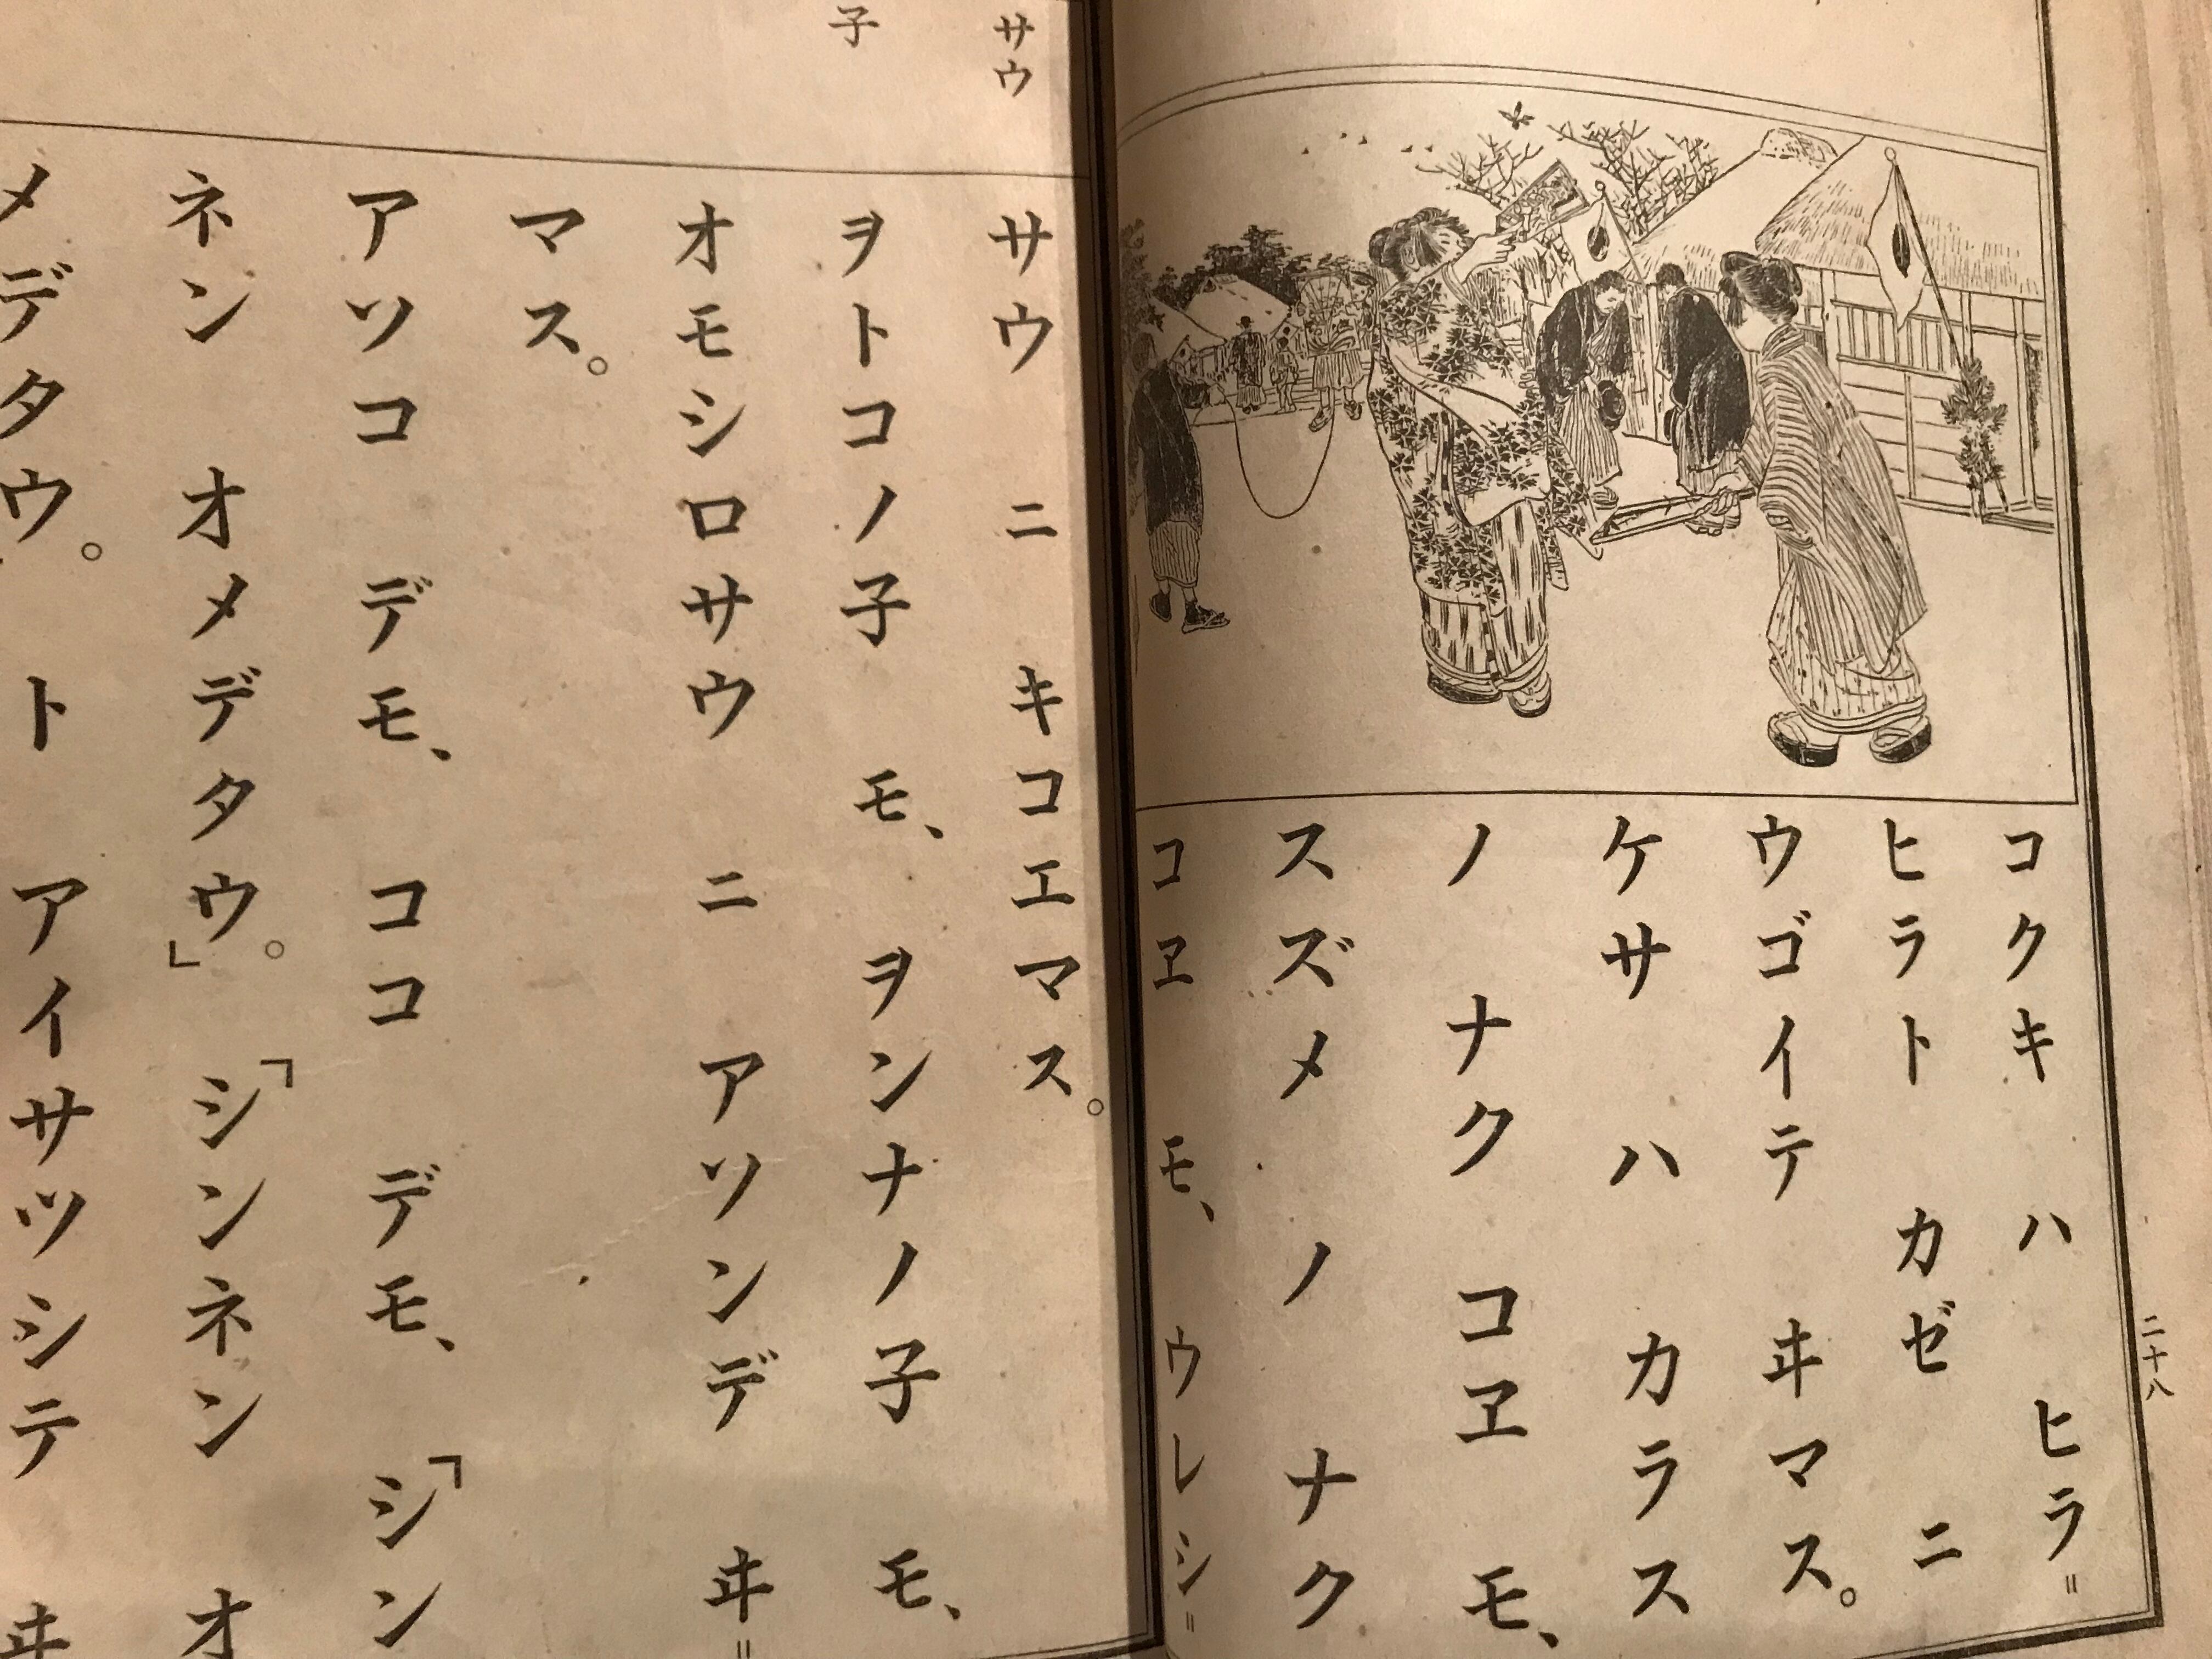 コクキ ハ ヒラ=
ヒラト カゼ ニ
ウゴイテ ヰマス。
ケサ ハ カラス
ノ ナク コヱ モ、
スズメ ノ ナク
コヱ モ、 ウレシ=
二十八
サウ
子
サウ ニ キコエマス。
ヲトコノ子 モ、 ヲンナノ子 モ、
オモシロサウ ニ アソンデ ヰ=
マス。
アソコ デモ、 ココ デモ、 「シン
ネン オメデタウ。」 「シンネン オ
メデタウ。 ト アイサツシテ ヰ